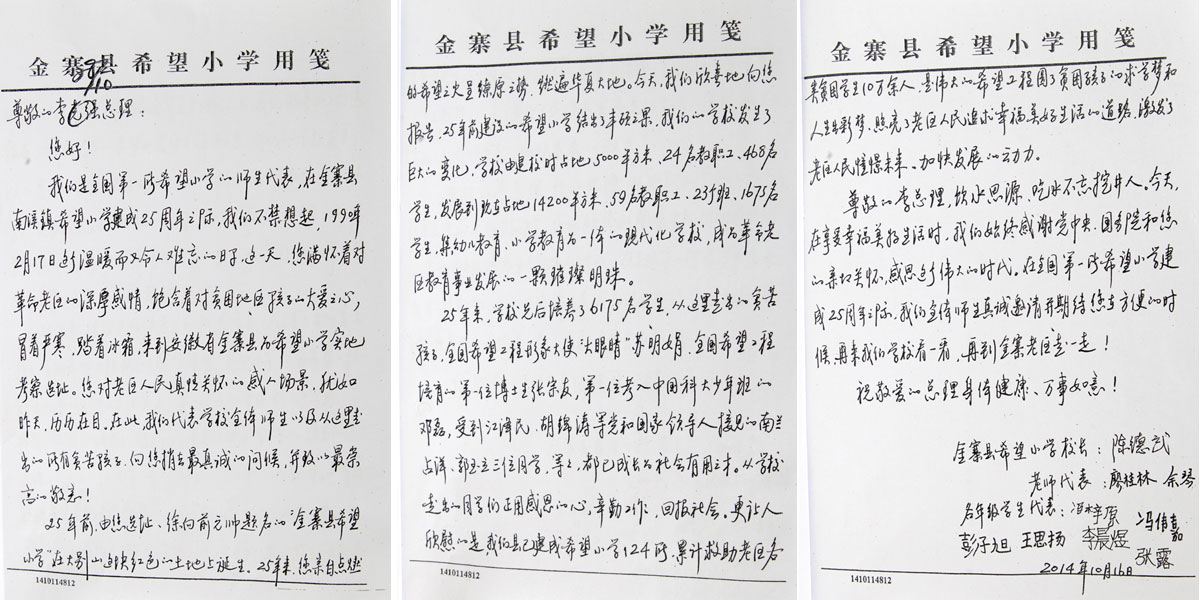 金寨县希望小学用笺
尊敬的李克强总理：
您好！
我们是全国第一所希望小学的师生代表，在金寨县
南溪镇希望小学建成25周年之际，我们不禁想起，1990年
2月17日这个温暖而又令人难忘的日子，这一天，您满怀着对
革命老区的深厚感情，饱含着对贫困地区孩子的大爱之心，
冒着严寒，踏着冰霜，来到安徽省金寨县为希望小学实地
考察选址。您对老区人民真情关怀的感人场景，犹如
昨天，历历在目。在此，我们代表学校全体师生以及从这里走
出的所有贫苦孩子，向您捎去最真诚的问候，并致以最崇
高的敬意！
25年前，由您选址、徐向前元帅题名的“金寨县希望
小学”在大别山这块红色的土地上诞生。25年来，您亲自点燃
1410114812
金寨县希望小学用笺
的希望之火呈燎原之势，燃遍华夏大地。今天，我们欣喜地向您
报告，25年前建设的希望小学结出了丰硕之果，我们的学校发生了
巨大的变化，学校由建校时占地5000平方米、24名教职工、468名
学生，发展到现在占地14200平方米、59名教职工、23个班、1675名
学生，集幼儿教育、小学教育为一体的现代化学校，成为革命老
区教育事业发展的一颗璀璨明珠。
25年来，学校先后培养了6175名学生，从这里走出的贫苦
孩子，全国希望工程形象大使“大眼睛”苏明娟、全国希望工程
培育的第一位博士生张宗友，第一位考入中国科大少年班的
邓磊，受到江泽民、胡锦涛等党和国家领导人接见的南兰
占洋、郭玉立三位同学，等等，都已成长为社会有用之才。从学校
走出的同学们正用感恩的心，辛勤工作，回报社会。更让人
欣慰的是，我们县已建成希望小学124所，累计救助老区各
1410114812
金寨县希望小学用笺
类贫困学生10万余人，是伟大的希望工程圆了贫困孩子的求学梦和
人生出彩梦，照亮了老区人民追求幸福美好生活的道路，激发了
老区人民憧憬未来、加快发展的动力。
尊敬的李总理，饮水思源，吃水不忘挖井人。今天，
在享受幸福美好生活时，我们始终感谢党中央、国务院和您
的亲切关怀，感恩这个伟大的时代。在全国第一所希望小学建
成25周年之际，我们全体师生真诚邀请并期待您在方便的时
候，再来我们学校看一看，再到金寨老区走一走！
祝敬爱的总理身体健康、万事如意！
金寨县希望小学校长：陈德武
老师代表：廖桂林 余琴
各年级学生代表：冯倩嘉
彭子恒 王思扬 李晨煜 张露
2014年10月16日
1410114812